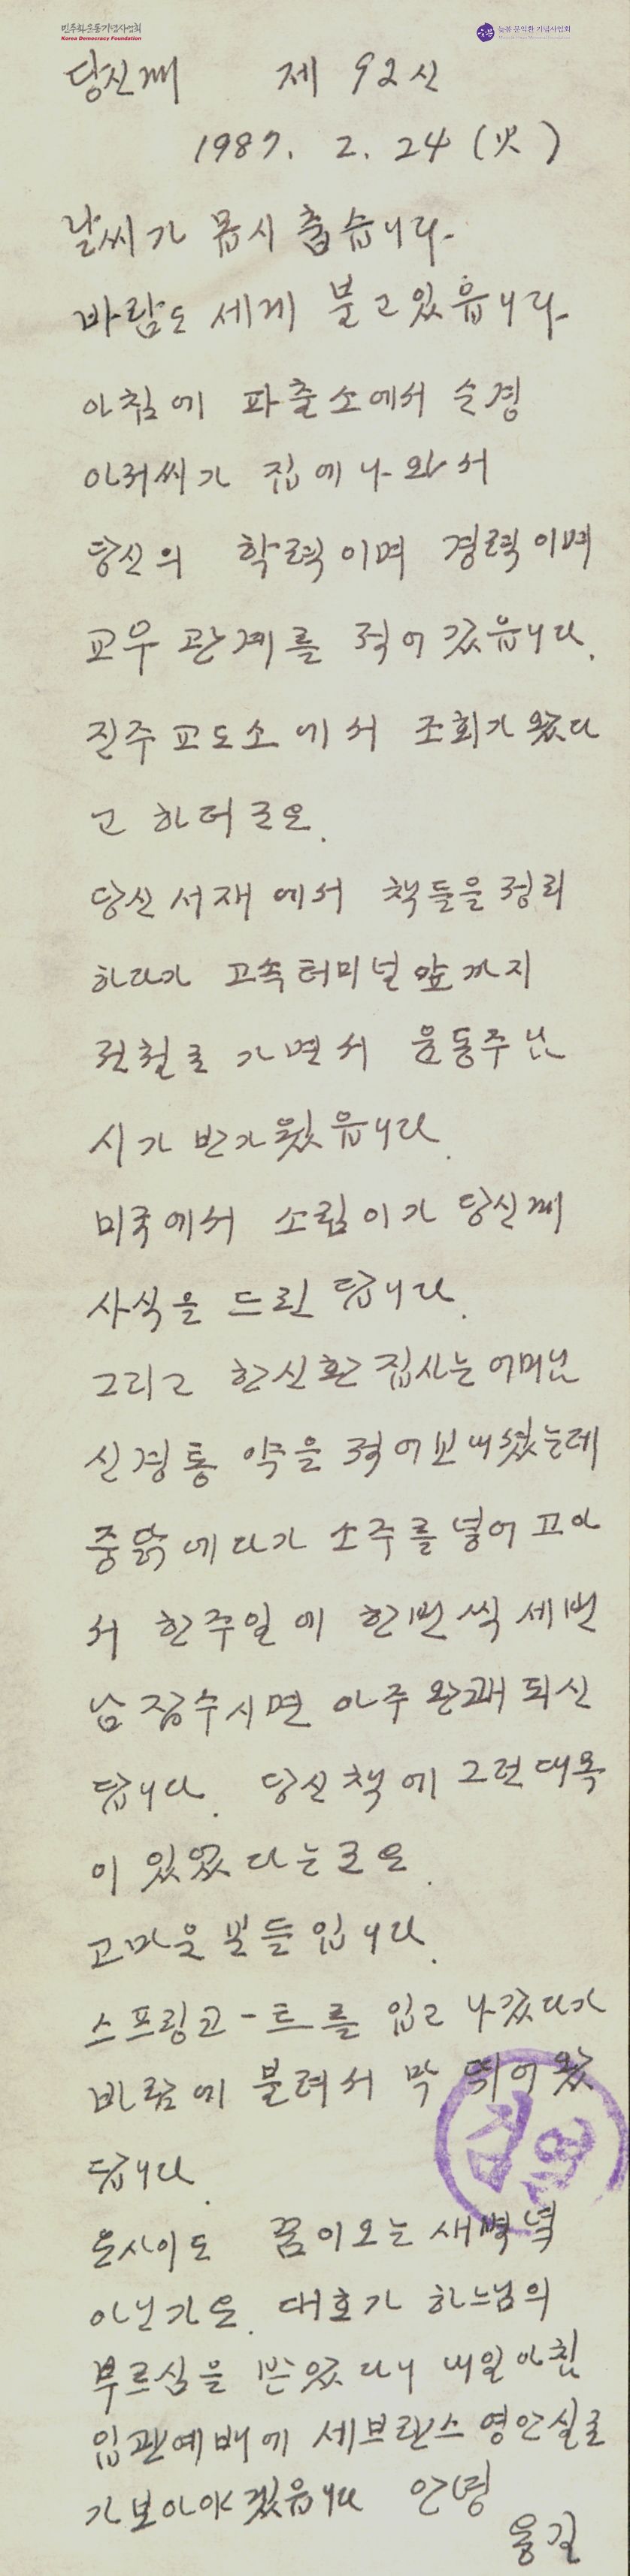 민주화운동기념사업회
Korea Democracy Foundation
늦봄 문익환 기념사업회
당신께 제 92신
1987. 2. 24 (火)
날씨가 몹시 춥습니다.
바람도 세게 불고 있읍니다.
아침에 파출소에서 순경
아저씨가 집에 나와서
당신의 학력이며 경력이며
교우 관계를 적어 갔읍니다.
진주 교도소에서 조회가 왔다
고 하더군요.
당신 서재에서 책들을 정리
하다가 고속터미널 앞까지
전철로 가면서 윤동주님
시가 반가웠읍니다.
미국에서 소림이가 당신께
사식을 드린답니다.
그리고 한신환 집사는 어머님
신경통 약을 적어보내셨는데
중닭에다가 소주를 넣어 고아
서 한주일에 한번씩 세번
만 잡수시면 아주 완쾌되신
답니다. 당신 책에 그런 대목
이 있었다는군요.
고마운 분들입니다.
스프링코-트를 입고 나갔다가
바람에 불려서 막 뛰어왔
답니다.
문사이도 꿈이오는 새벽녘
아닌가요. 대호가 하느님의
부르심을 받았다니 내일 아침
입관예배에 세브란스 영안실로
가보아야겠읍니다 안녕
용길
검열